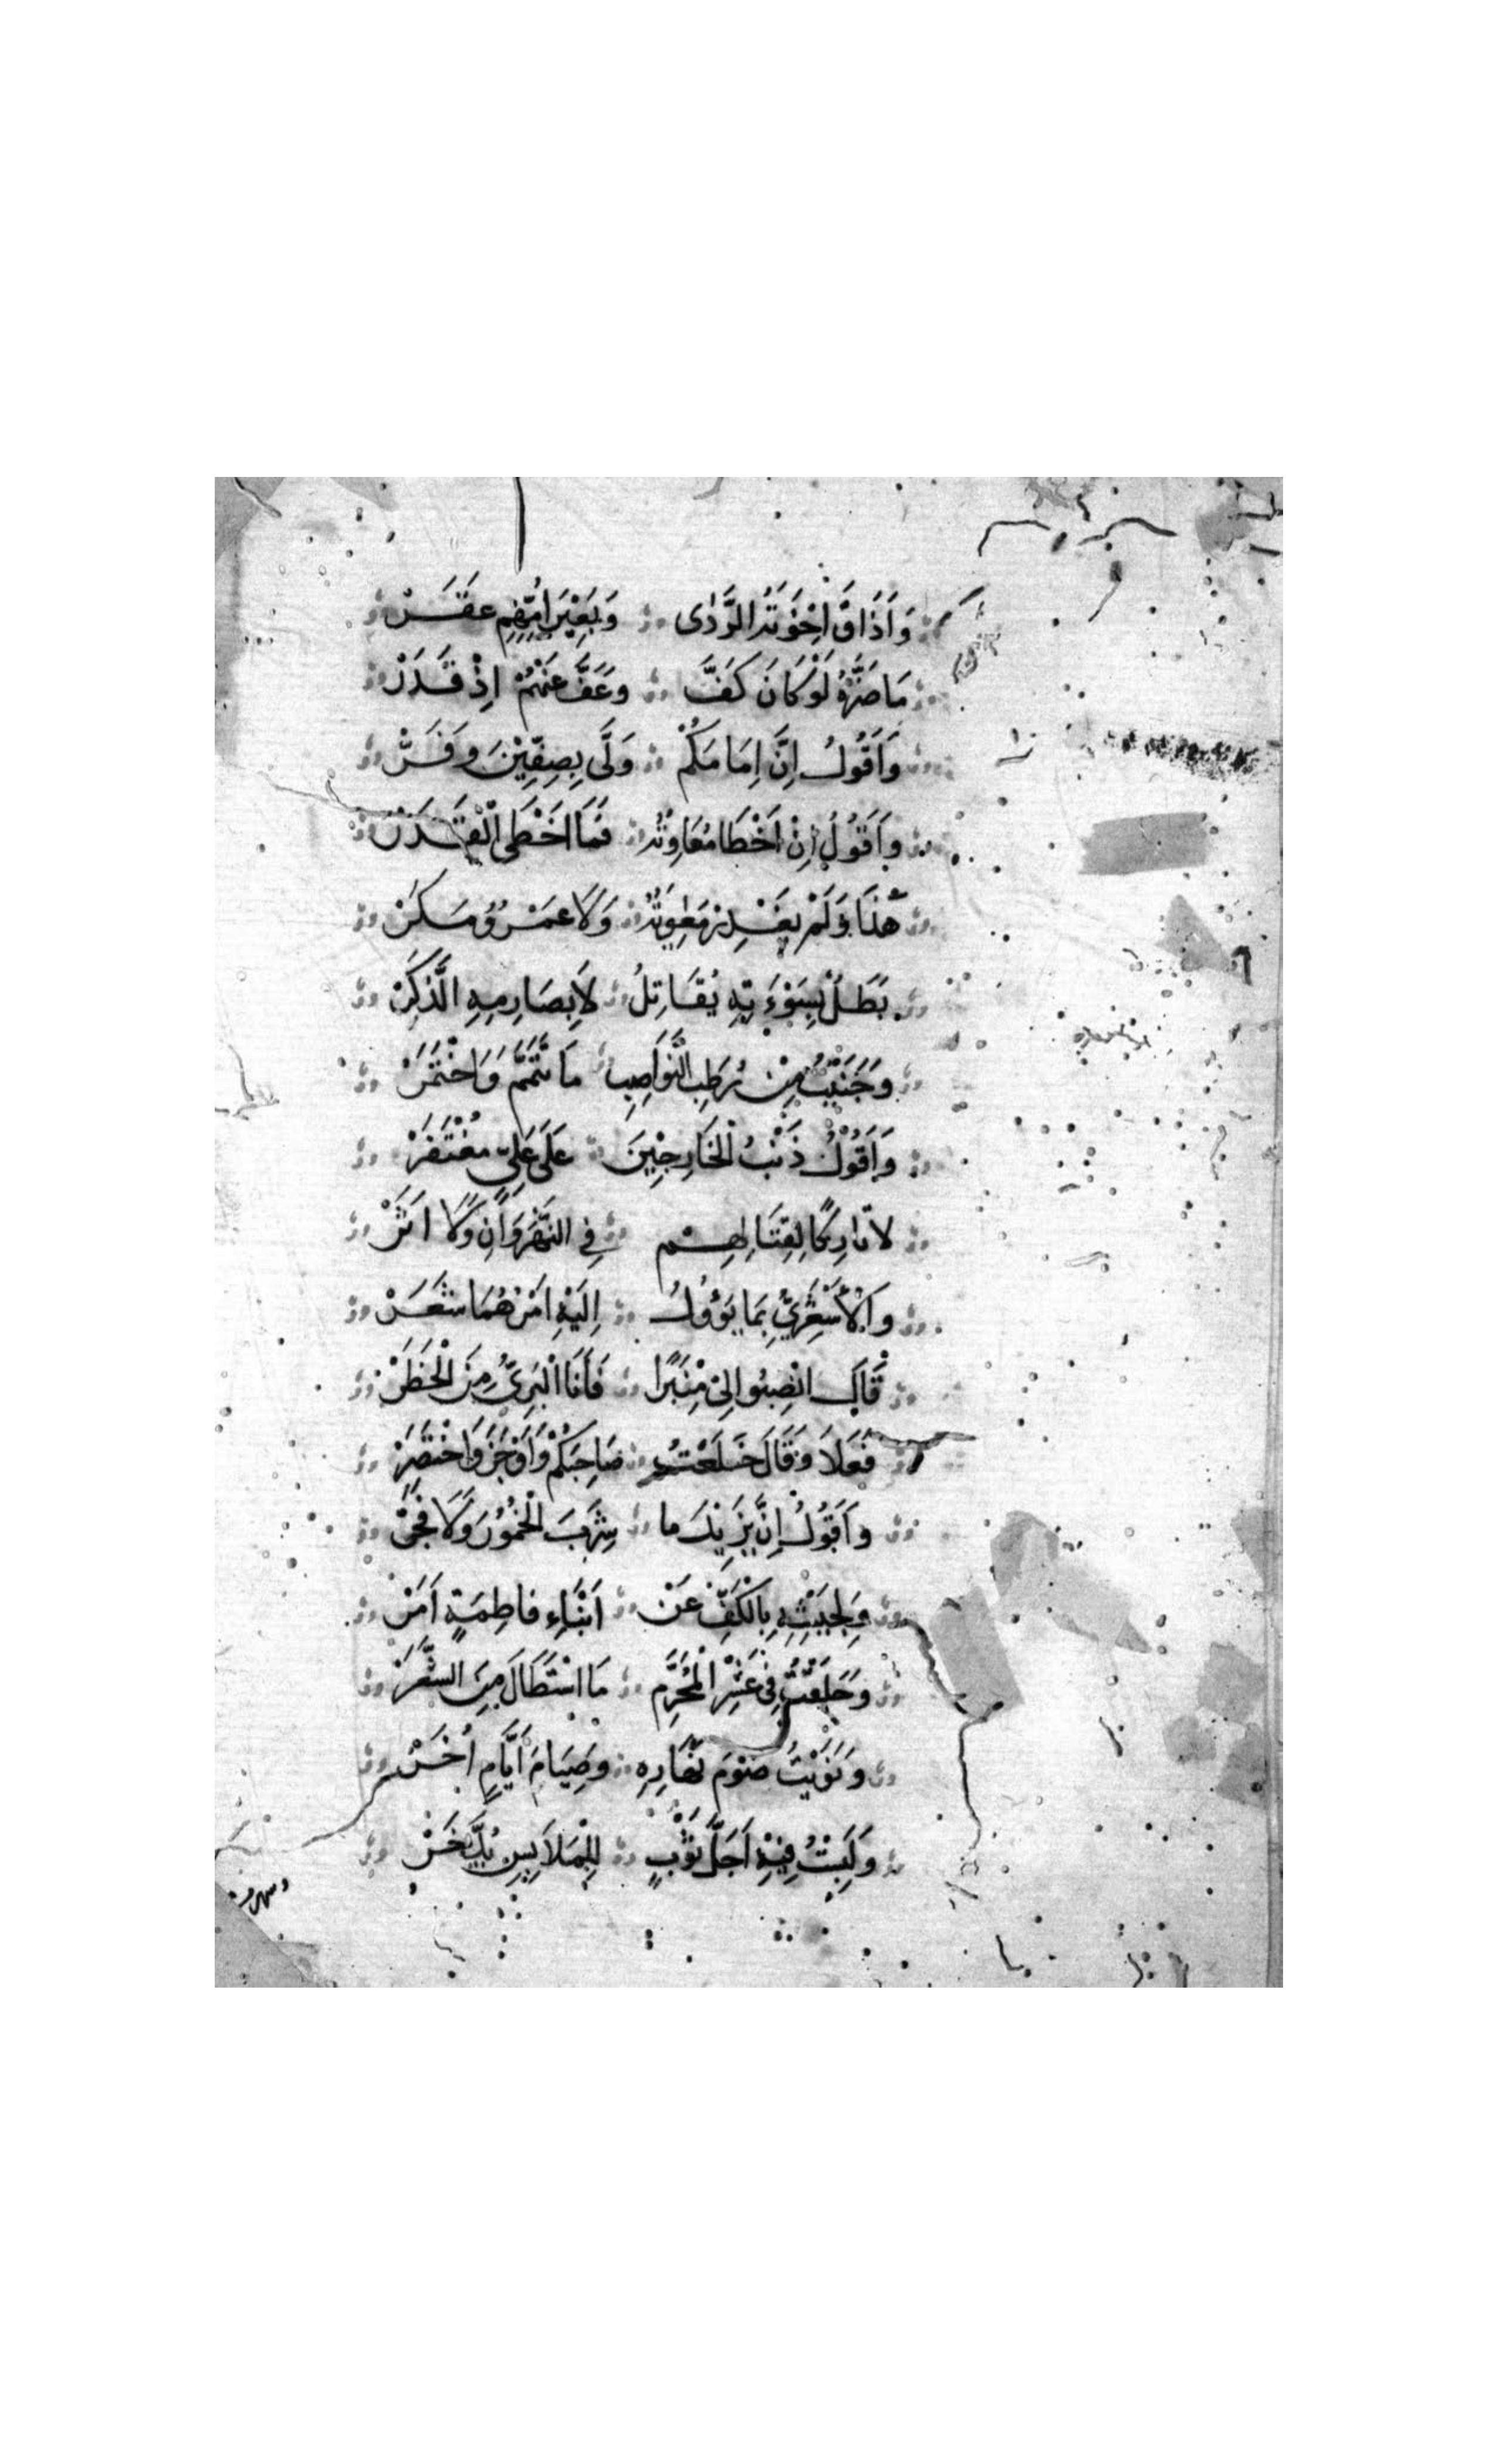 وَاَذَاقَ اِخْوَتَهُ الرَّدٰى وَبَعِيْرَ اُمِّهِمِ عَقَرْ
مَا ضَرَّهُ لَوْ كَانَ كَفَّ وَعَفَّ عَنْهُمْ اِذْ قَدَرْ
وَاَقُولُ اِنَّ اِمَامَكُمْ وَلَّى بِصِفِّيْنَ وَفَرّْ
وَاَقُولُ اِنْ اَخْطَا مُعَاوِيَةُ فَمَا اَخْطَى الْقَدَرْ
هٰذَا وَلَمْ يَغْدِرْ مَعٰوِيَةُ وَلَا عَمْرٌو مَكَرْ
بَطَلٌ بِسَوْءَتِهِ يُقَاتِلُ لَا بِصَارِمِهِ الذَّكَرْ
وَجَنَيْتُ مِنْ رُطَبِ النَّوَاصِبِ مَا تَتَمَّمَ وَاخْتَمَرْ
وَاَقُوْلُ ذَنْبُ الْخَارِجِيْنَ عَلَى عَلِيٍّ مُغْتَفَرْ
لَا ثَارِكًا لِقِتَالِهِمْ فِي النَّهْرَوَانِ وَلَا اَثَرْ
وَالْاَشْعَرِيُّ بِمَا يَؤُولُ اِلَيْهِ اَمْرُهُمَا شَعَرْ
قَالَ انْصِبُوا لِيْ مِنْبَرًا فَاَنَا الْبَرِيُّ مِنَ الْخَطَرْ
فَعَلَا وَقَالَ خَلَعْتُ صَاحِبَكُمْ وَاَوْجَزَ وَاخْتَصَرْ
وَاَقُولُ اِنَّ يَزِيْدَ مَا شَرِبَ الْخُمُوْرَ وَلَا فَجَرْ
وَلِجَيْشِهِ بِالْكَفِّ عَنْ اَبْنَاءِ فَاطِمَةٍ اَمَرْ
وَحَلَقْتُ فِيْ عَشْرِ الْمُحَرَّمِ مَا اسْتَطَالَ مِنَ الشَّعَرْ
وَنَوَيْتُ صَوْمَ نَهَارِهِ وَصِيَامَ اَيَّامٍ اُخَرْ
وَلَبِسْتُ فِيْهِ اَجَلَّ ثَوْبٍ لِلْمَلَابِسِ يُدَّخَرْ